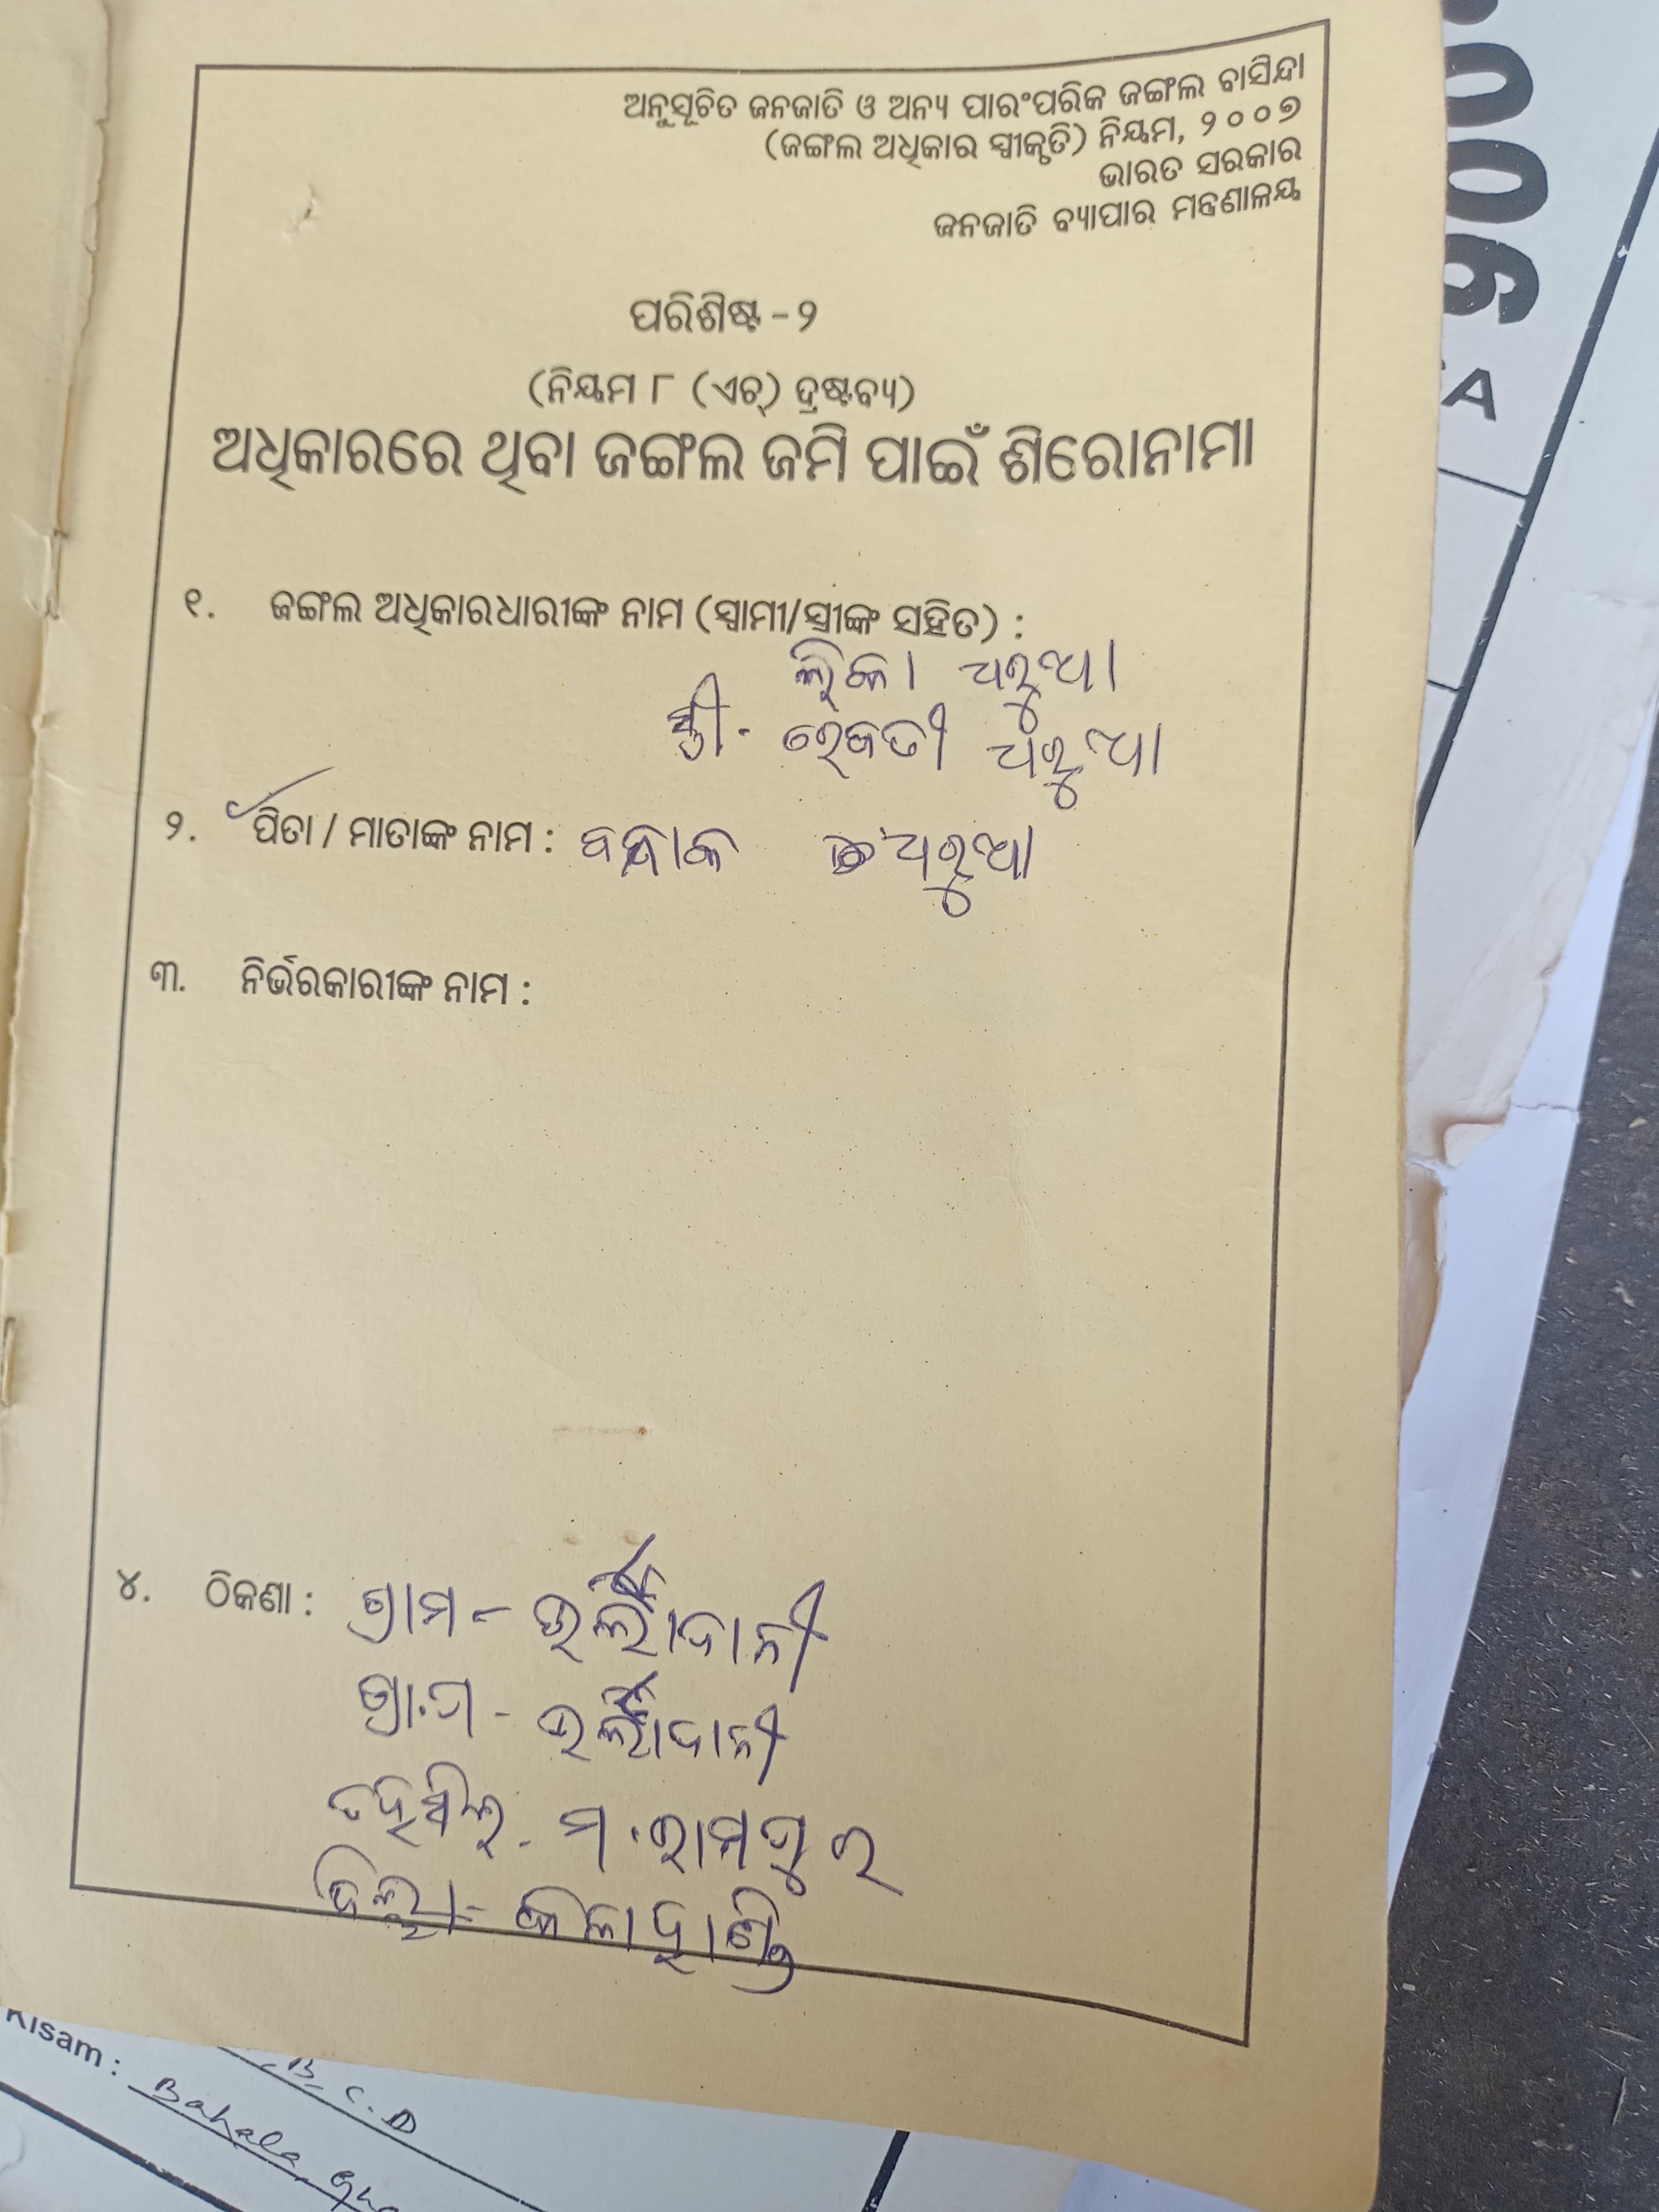 ଅନୁସୂଚିତ ଜନଜାତି ଓ ଅନ୍ୟ ପାରଂପରିକ ଜଙ୍ଗଲ ବାସିନ୍ଦା
(ଜଙ୍ଗଲ ଅଧିକାର ସ୍ୱୀକୃତି) ନିୟମ, ୨୦୦୭
ଭାରତ ସରକାର
ଜନଜାତି ବ୍ୟାପାର ମନ୍ତ୍ରଣାଳୟ
ପରିଶିଷ୍ଟ - ୨
(ନିୟମ ୮ (ଏଚ୍) ଦ୍ରଷ୍ଟବ୍ୟ)
ଅଧିକାରରେ ଥିବା ଜଙ୍ଗଲ ଜମି ପାଇଁ ଶିରୋନାମା
୧. ଜଙ୍ଗଲ ଅଧିକାରଧାରୀଙ୍କ ନାମ (ସ୍ୱାମୀ/ସ୍ତ୍ରୀଙ୍କ ସହିତ) :
ସ୍ତ୍ରୀ -
୨. ପିତା / ମାତାଙ୍କ ନାମ :
୩. ନିର୍ଭରକାରୀଙ୍କ ନାମ :
୪. ଠିକଣା : ଗ୍ରାମ -
ଗ୍ରା.ପ -
ତହସିଲ - ମ. ରାମପୁର
ଜିଲ୍ଲା - କଳାହାଣ୍ଡି
006
A
B.C.D
Kisam : Bahala